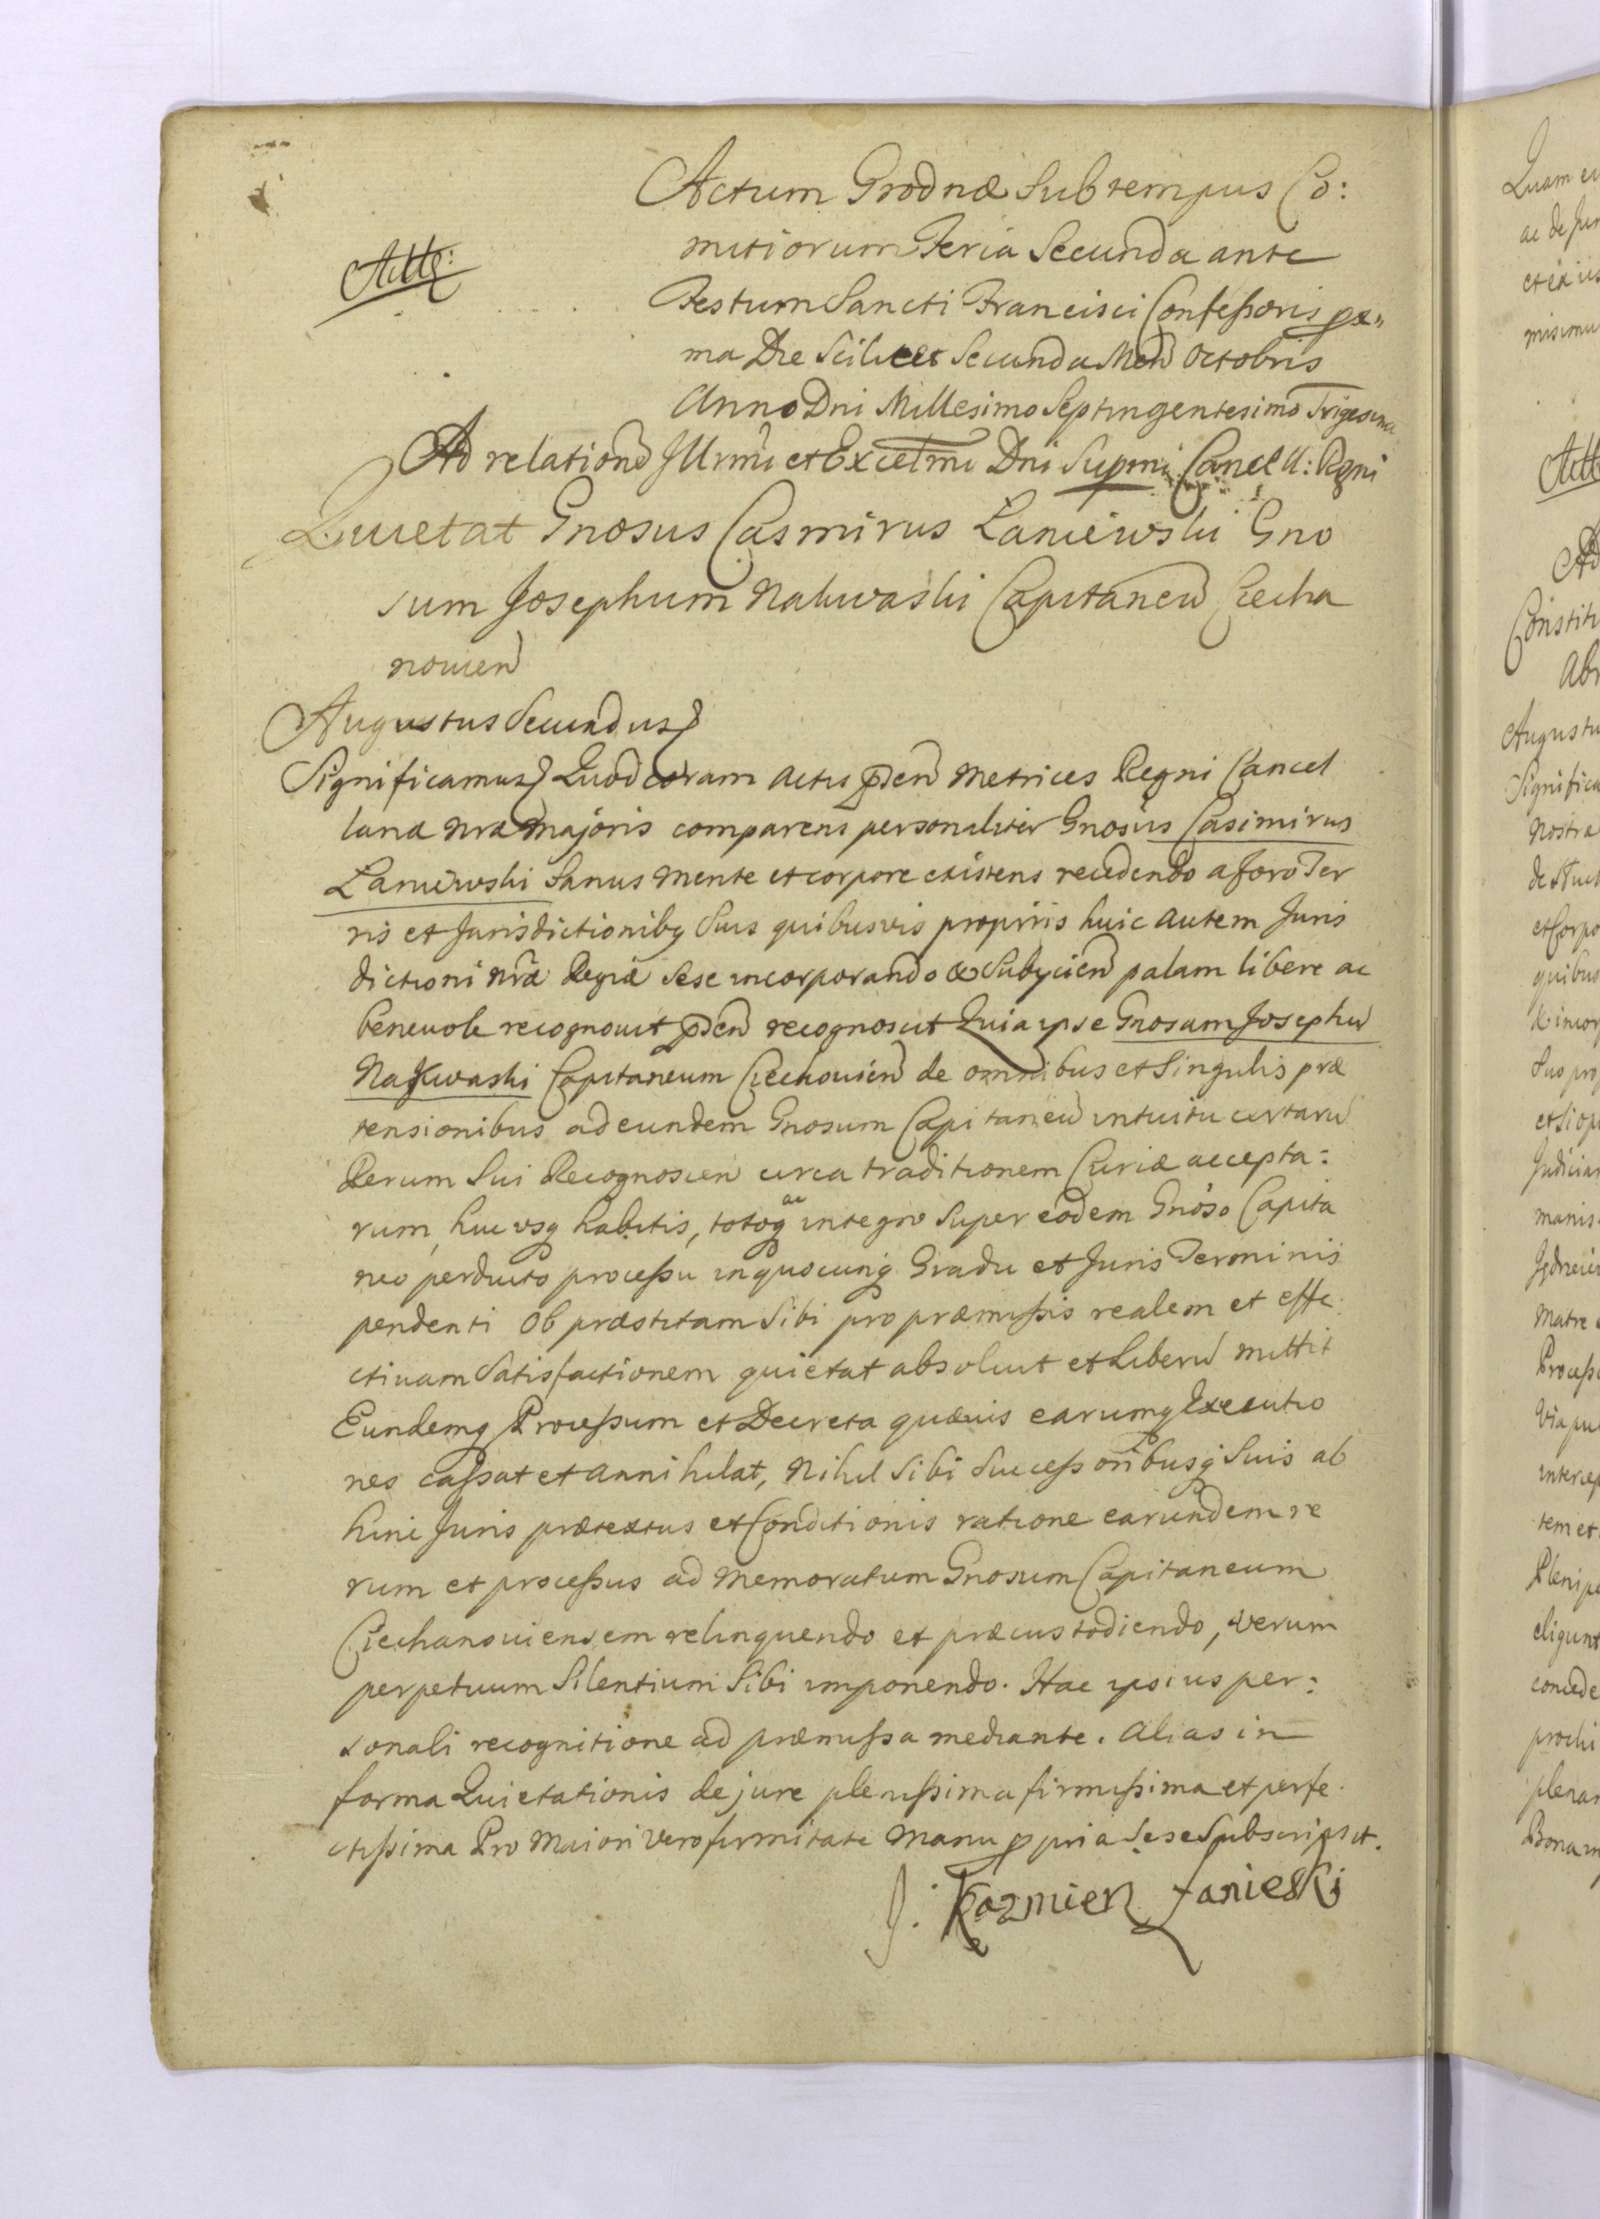 Actum Grodnæ Sub tempus Co:
mitiorum Feria Secunda ante
Festum Sancti Francisci Confessoris
ma Die Scilicet Secunda Men Octobris
Anno Dni Millesimo Septingentesimo Trigesimo
Ad relatione Illrmi et Excelmi Dni Supmi Cancll: Regni
Quietat Gnosus Casmirus Łaniewski Gno
sum Josephum Nakwaski Capitaneu Ciecha
novien
Augustus Secundus
Significamus Quod coram Actis pñen Metrices Regni Cancel
lariæ nræ Majoris comparens personaliter Gnosus Casimirus
Łaniewski Sanus Mente et corpore existens recedendo a foro Ter
ris et Jurisdictionibq Suis quibusvis propriis huic autem Juris
dictioni nræ Regiæ sese incorporando et Subijcien palam libere ac
benevole recognovit pñen recognoscit Quia ipse Gnosum Josephu
Nakwaski Capitaneum Ciechanouien de omnibus et Singulis præ
tensionibus ad eundem Gnosum Capitaneu intuitu certaru
Rerum Sui Recognoscen circa traditionem Curiæ accepta:
rum, huc usq habitis, totoq ac integro Super eodem Gnoso Capita
neo perducto processu in quocunq Gradu et Juris Terminis
pendenti Ob præstitam Sibi pro præmissis realem et effe
ctivam Satisfactionem quietat absoluit et Liberu mittit
Eundemq Processum et Decreta quævis earumq Executio
nes cassat et annihilat, Nihil Sibi Successoribusq Suis ab
hinc Juris prætextus et Conditionis ratione earundem re
rum et processus ad Memoratum Gnosum Capitaneum
Ciechanouiensem relinquendo et præcustodiendo, verum
perpetuum Silentium Sibi imponendo. Hac ipsius per:
sonali recognitione ad præmissa mediante. Alias in
forma Quietationis de jure plenissima firmissima et perfe
ctissima Pro Maiori vero firmitate Manu ppria Sese Subscripsit.
J. Kazmierz Łanieski